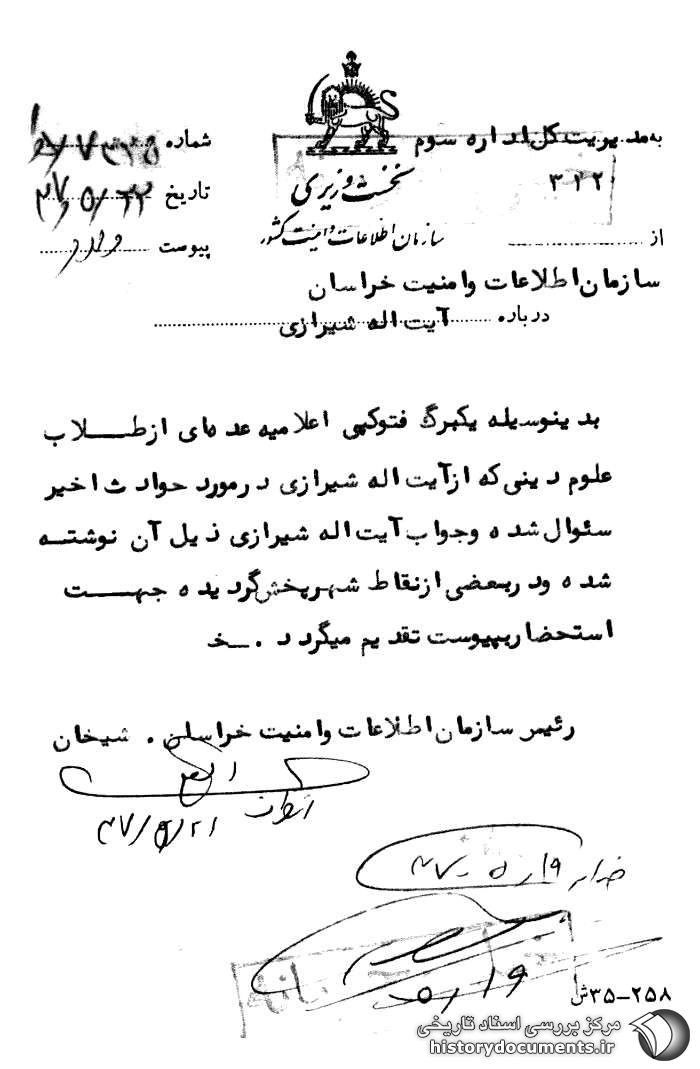 به مدیریت کل اداره سوم
۳۱۲
شماره
تاریخ
پیوست دارد
نخست وزیری
سازمان اطلاعات و امنیت کشور
از
سازمان اطلاعات و امنیت خراسان
درباره آیت اله شیرازی
بدینوسیله یکبرگ فتوکپی اعلامیه عده‌ای از طلاب
علوم دینی که از آیت اله شیرازی در مورد حوادث اخیر
سئوال شده و جواب آیت اله شیرازی ذیل آن نوشته
شده و در بعضی از نقاط شهر پخش گردیده جهت
استحضار بپیوست تقدیم میگردد . خ
رئیس سازمان اطلاعات و امنیت خراسان . شیخان
۲۵۸-۳۵ش
مرکز بررسی اسناد تاریخی
historydocuments.ir